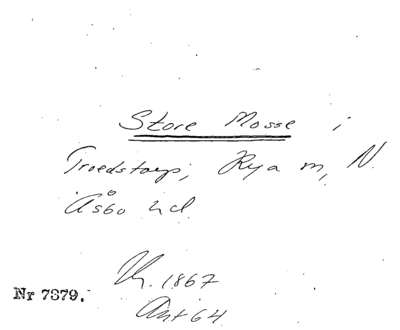 Store Mosse i
Troedstorp, Rya m, N.
Åsbo hd
Nr 7379.
1867
Ant 64